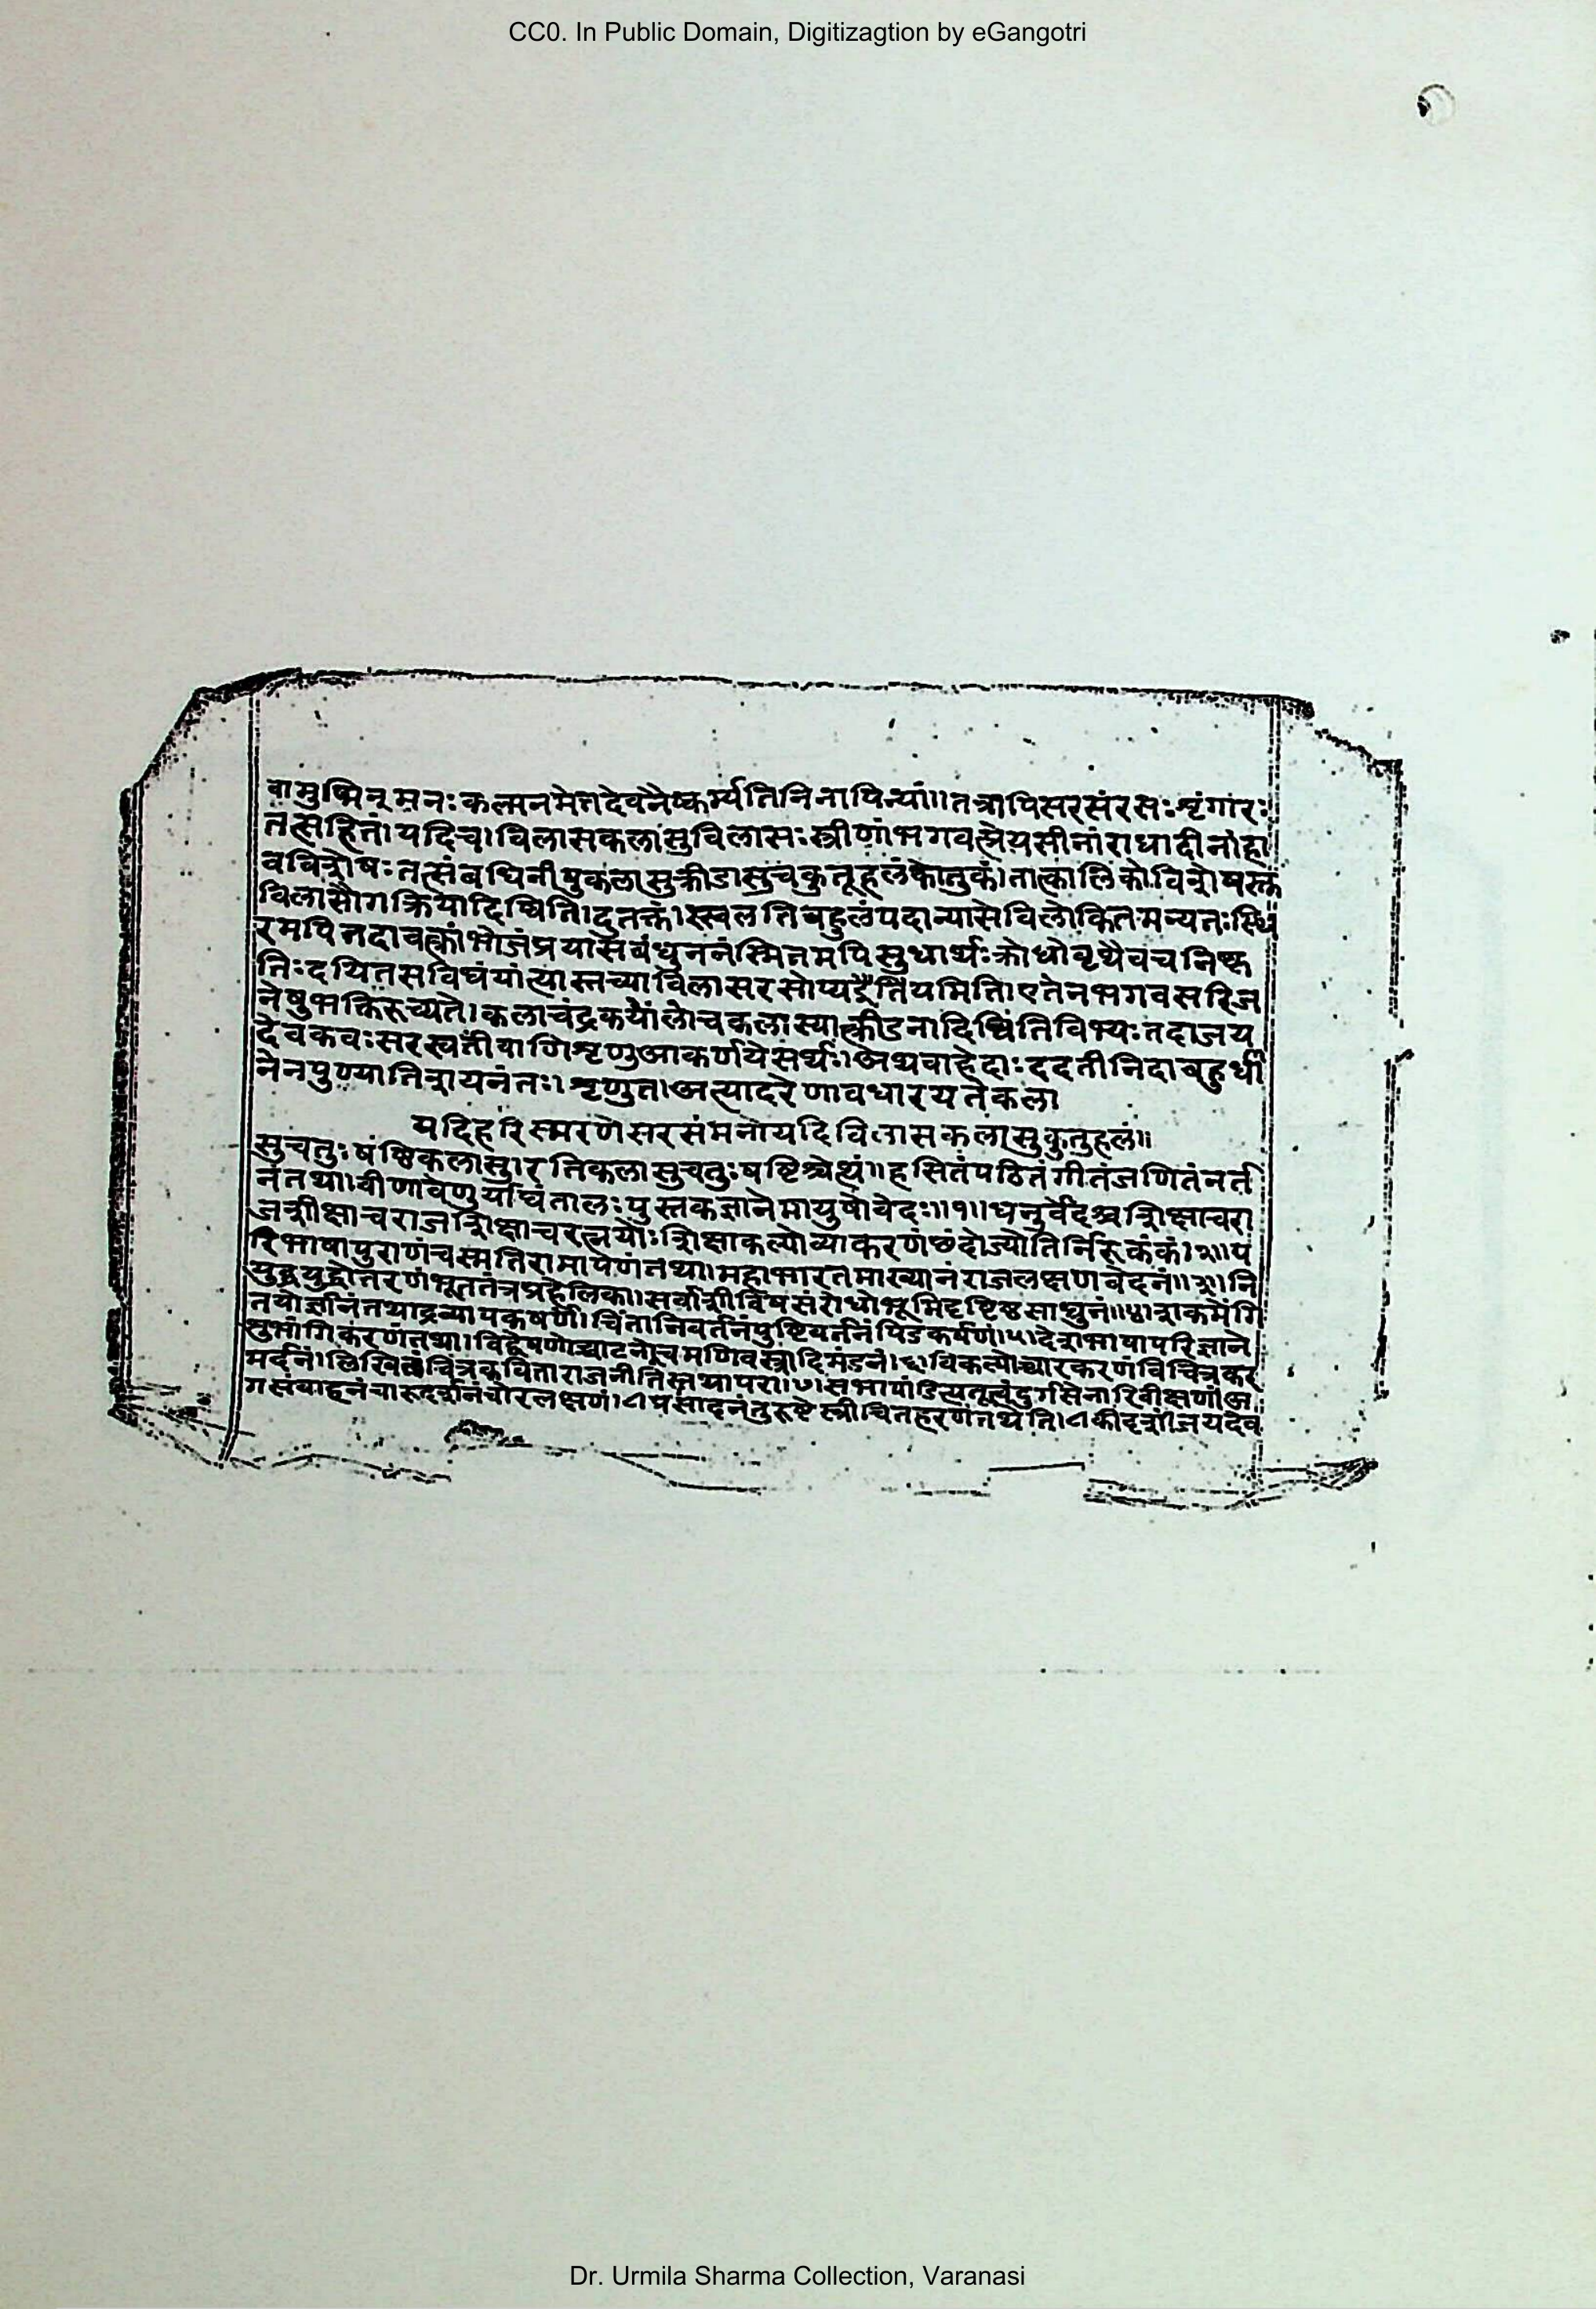 CC0. In Public Domain, Digitizagtion by eGangotri
वामुष्मिन् मनःकल्पनमेतदेवनैष्कर्म्यतिनिनापिन्यां॥तत्रापिसरसंरसःशृंगारः
तत्सहितं।यदिच।विलासकलासुविलासःस्त्रीणांभगवत्प्रेयसीनांराधादीनांहा
वविशेषःतत्संबंधिनीषुकलासुक्रीडासुचकुतूहलंकौतुकं।तात्कालिकोविशेषस्तु
विलासौगक्रियादिष्विति।दुतक्तं।स्खलतिबहुलंपदान्यासेविलोकितमन्यतःस्थि
रमपितदावक्त्रांभोजंप्रयासबंधुननंस्मितमपिसुधार्थःक्रोधोवृथैवचनिष्कृ
तिःदयितसविधंयांत्यास्तच्याविलासरसोप्यद्वैर्तियमिति।एतेनभगवसरिज
नेषुभक्तिरुच्यते।कलाचंद्रकयोंलोचकलास्यात्क्रीडनादिष्विंतिविभ्यःतदाजय
देवकवःसरस्वतींवाणिंशृणुआकर्णयेसर्थः।अथवाहेदाःददतीनिदाबहुर्थी
नेनपुण्यातिशयनंतः।शृणुत।अत्यादरेणावधारयतेकला
यदिहरिस्मरणेसरसंमनोयदिविलासकलासुकुतुहलं॥
सुचतुःषंष्ठिकलासु।रतिकलासुचतुःषष्टिश्चेत्थं॥हसितंपठितंगीतंजणितंनर्त
नंतथा।वीणावेणुर्यांघितालःपुस्तकज्ञानेमायुषोवेदः॥१॥धनुर्वेदश्चशिक्षाचरा
जशीक्षाचराजशिक्षाचरत्नयोःशिक्षाकल्पोव्याकरणंछंदोज्योतिर्निरूकंकं।२॥प
रिभाषापुराणंचस्मतिरामायेणंतथा।महाभारतमाख्यानंराजलक्षणवेदनं॥३॥नि
युद्धयुद्धोत्तरणंभूततंत्रप्रहेलिका।सर्वाशीविषसंरोधोभूमिदृष्टिष्ठसाधुनं॥४॥शकमंगि
तयोर्ज्ञानंतथाद्रव्यापकृषणं।चिंतानिवर्तनंपुष्टिवर्तनंपिंडकर्षणं।५।देशभाषापरिज्ञाने
शुभांगिकरणंतथा।विद्वेषणोच्चाटनोचमणिवस्त्रादिमंडनं।६।विकल्पोच्चारकरणंविचित्रकर
मर्दनं।लिखितंचित्रकविताराजनीतिस्तथापरा।७।सभापांडित्यतूत्वंदुर्गसेनारिवीक्षणं।अ
गसंवाहनंचारूदर्शनंचोरलक्षणं।८प्रसादनंतुरुष्टेस्त्रीचितहरणंतथेति।८कीदृशीजयदेव
Dr. Urmila Sharma Collection, Varanasi